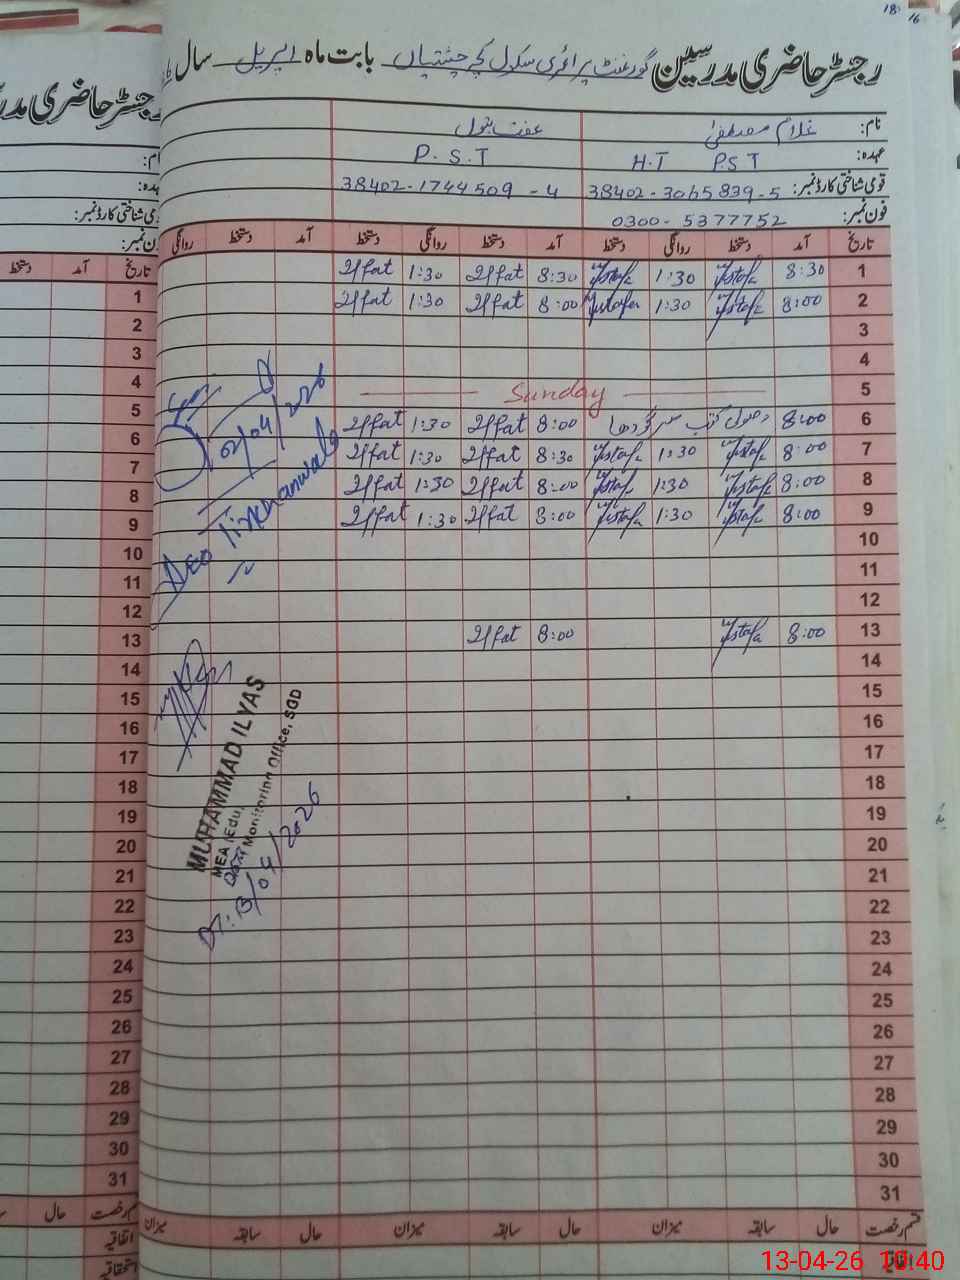 18 16
رجسٹر حاضری مدرسین گورنمنٹ پرائمری سکول کچہ چشتیاں بابت ماہ اپریل سال
نام: غلام مصطفیٰ عفت بتول
عہدہ: H.T P.S.T P.S.T
قومی شناختی کارڈ نمبر: 38402-3065839-5 38402-1744509-4
فون نمبر: 0300-5377752
تاریخ آمد دستخط روانگی دستخط آمد دستخط روانگی دستخط آمد دستخط روانگی
1 8:30 Mustafa 1:30 Mustafa 8:30 Iffat 1:30 Iffat
2 8:00 Mustafa 1:30 Mustafa 8:00 Iffat 1:30 Iffat
3
4
5 Sunday
6 8:00 وصولی کتب سرگودھا 8:00 Iffat 1:30 Iffat
7 8:00 Mustafa 1:30 Mustafa 8:30 Iffat 1:30 Iffat
8 8:00 Mustafa 1:30 Mustafa 8:00 Iffat 1:30 Iffat
9 8:00 Mustafa 1:30 Mustafa 8:00 Iffat 1:30 Iffat
10
11
12
13 8:00 Mustafa 8:00 Iffat
14
15
16
17
18
19
20
21
22
23
24
25
26
27
28
29
30
31
قسم رخصت حال سابقہ میزان حال سابقہ میزان حال سابقہ میزان
اتفاقیہ
02/04/2026
MUHAMMAD ILYAS
MEA (Edu)
Monitoring Office, SGD
DT: 13/04/2026
رجسٹر حاضری مدر
نام:
عہدہ:
قومی شناختی کارڈ نمبر:
فون نمبر:
تاریخ آمد دستخط
1
2
3
4
5
6
7
8
9
10
11
12
13
14
15
16
17
18
19
20
21
22
23
24
25
26
27
28
29
30
31
قسم رخصت حال
اتفاقیہ
استحقاقیہ
13-04-26 10:40